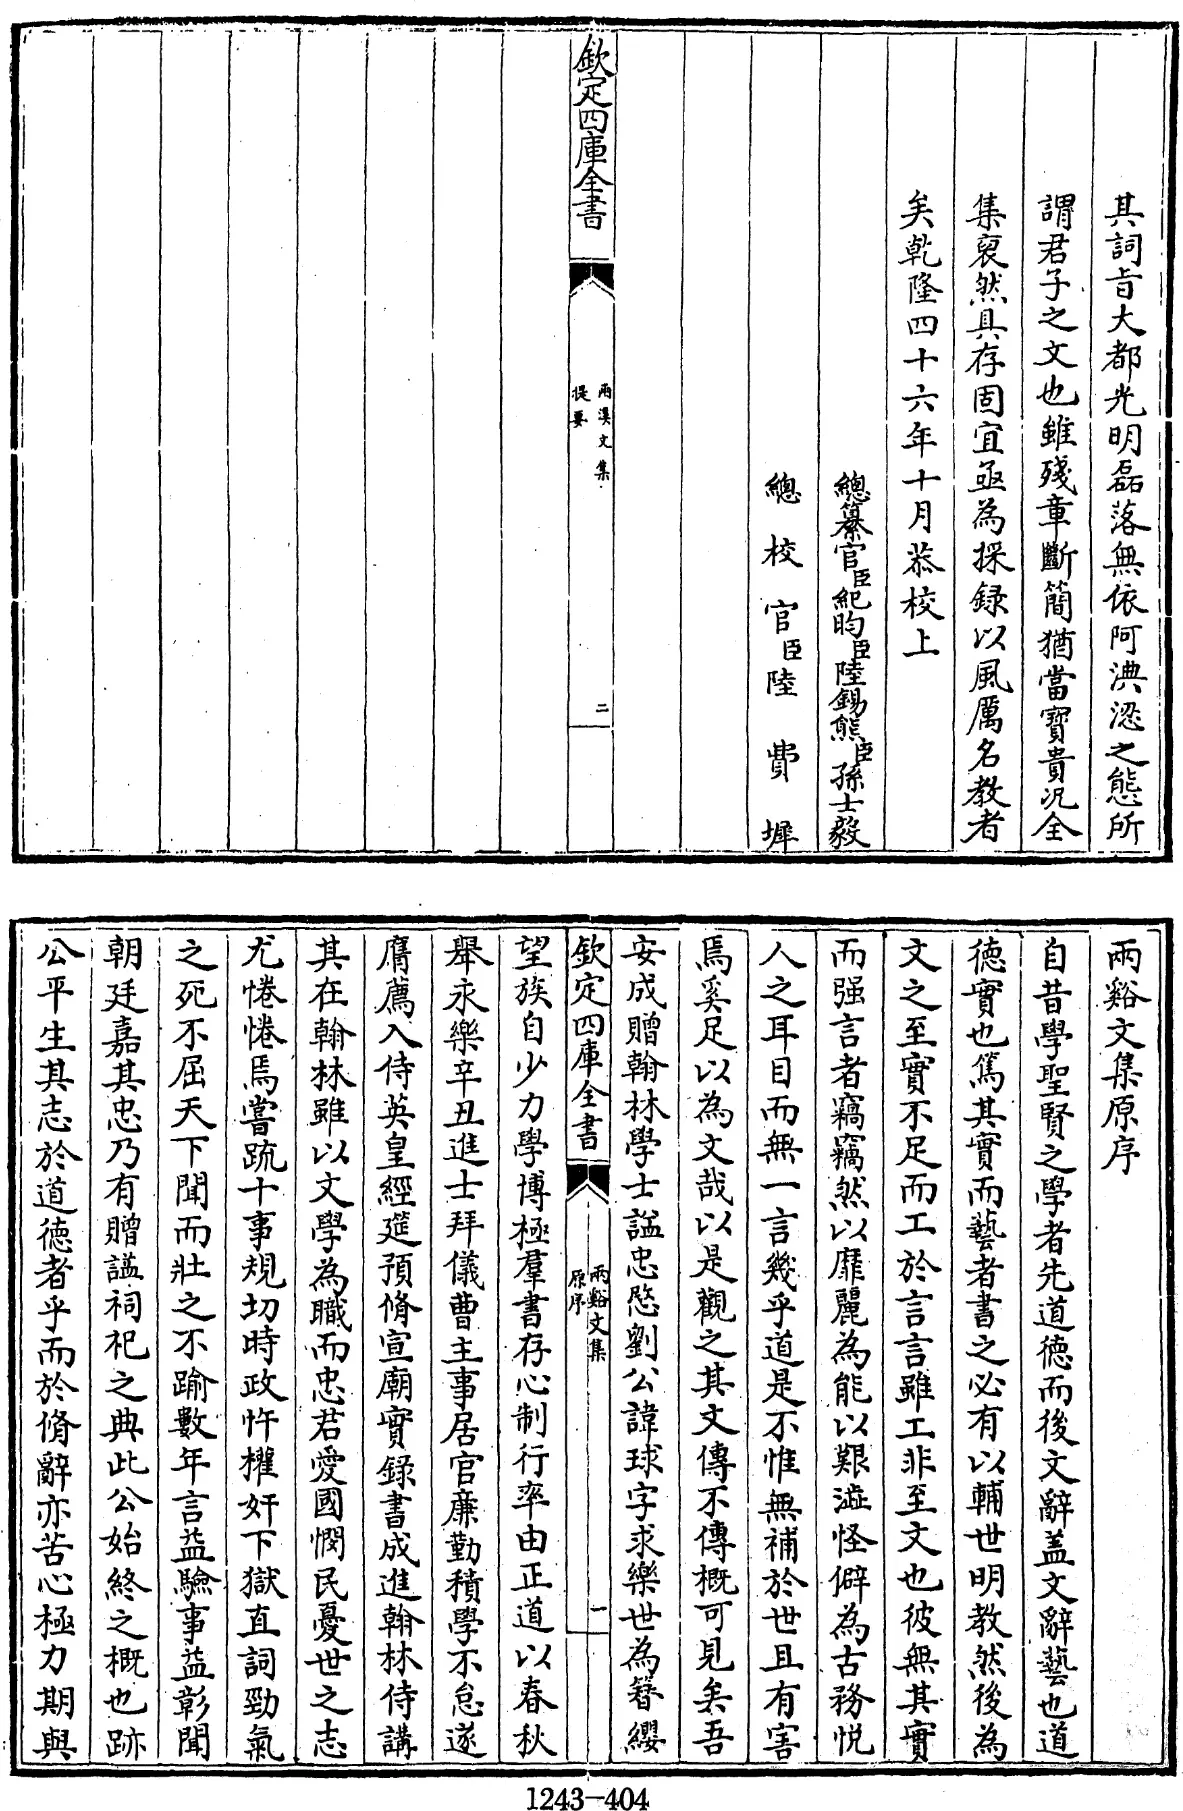 其詞旨大都光明磊落無依阿淟涊之態所
謂君子之文也雖殘章斷簡猶當寳貴况全
集裒然具存固宜亟為採録以風厲名教者
矣乾隆四十六年十月恭校上
總纂官臣紀昀臣陸錫熊臣孫士毅
總校官臣陸費墀
欽定四庫全書
兩溪文集
提要
二
兩谿文集原序
自昔學聖賢之學者先道德而後文辭盖文辭藝也道
德實也篤其實而藝者書之必有以輔世明教然後為
文之至實不足而工於言言雖工非至文也彼無其實
而强言者竊竊然以靡麗為能以艱澁怪僻為古務悦
人之耳目而無一言幾乎道是不惟無補於世且有害
焉奚足以為文哉以是觀之其文傳不傳概可見矣吾
安成贈翰林學士諡忠愍劉公諱球字求樂世為簪纓
欽定四庫全書
兩谿文集
原序
一
望族自少力學博極羣書存心制行率由正道以春秋
舉永樂辛丑進士拜儀曹主事居官廉勤積學不怠遂
膺薦入侍英皇經筵預脩宣廟實錄書成進翰林侍講
其在翰林雖以文學為職而忠君愛國憫民憂世之志
尤惓惓焉嘗疏十事規切時政忤權奸下獄直詞勁氣
之死不屈天下聞而壯之不踰數年言益驗事益彰聞
朝廷嘉其忠乃有贈諡祠祀之典此公始終之概也跡
公平生其志於道德者乎而於脩辭亦苦心極力期與
1243-404